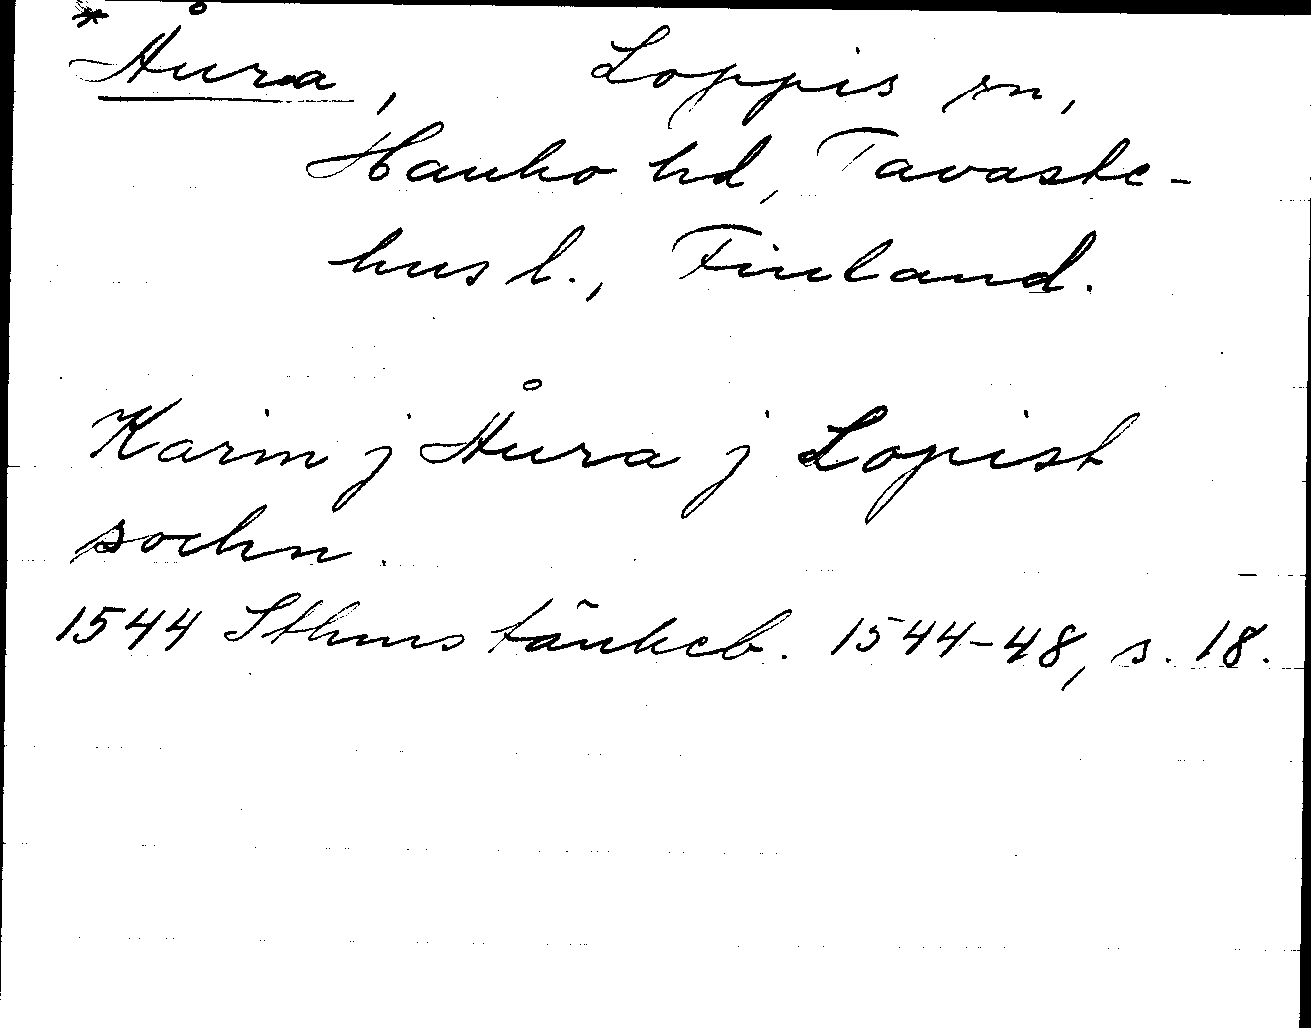 *Åura, Loppis sn,
Hauho hd, Tavaste-
hus l., Finland.
Karin j Åura j Lopist
sochn.
1544 Sthms tänkeb. 1544-48, s. 18.